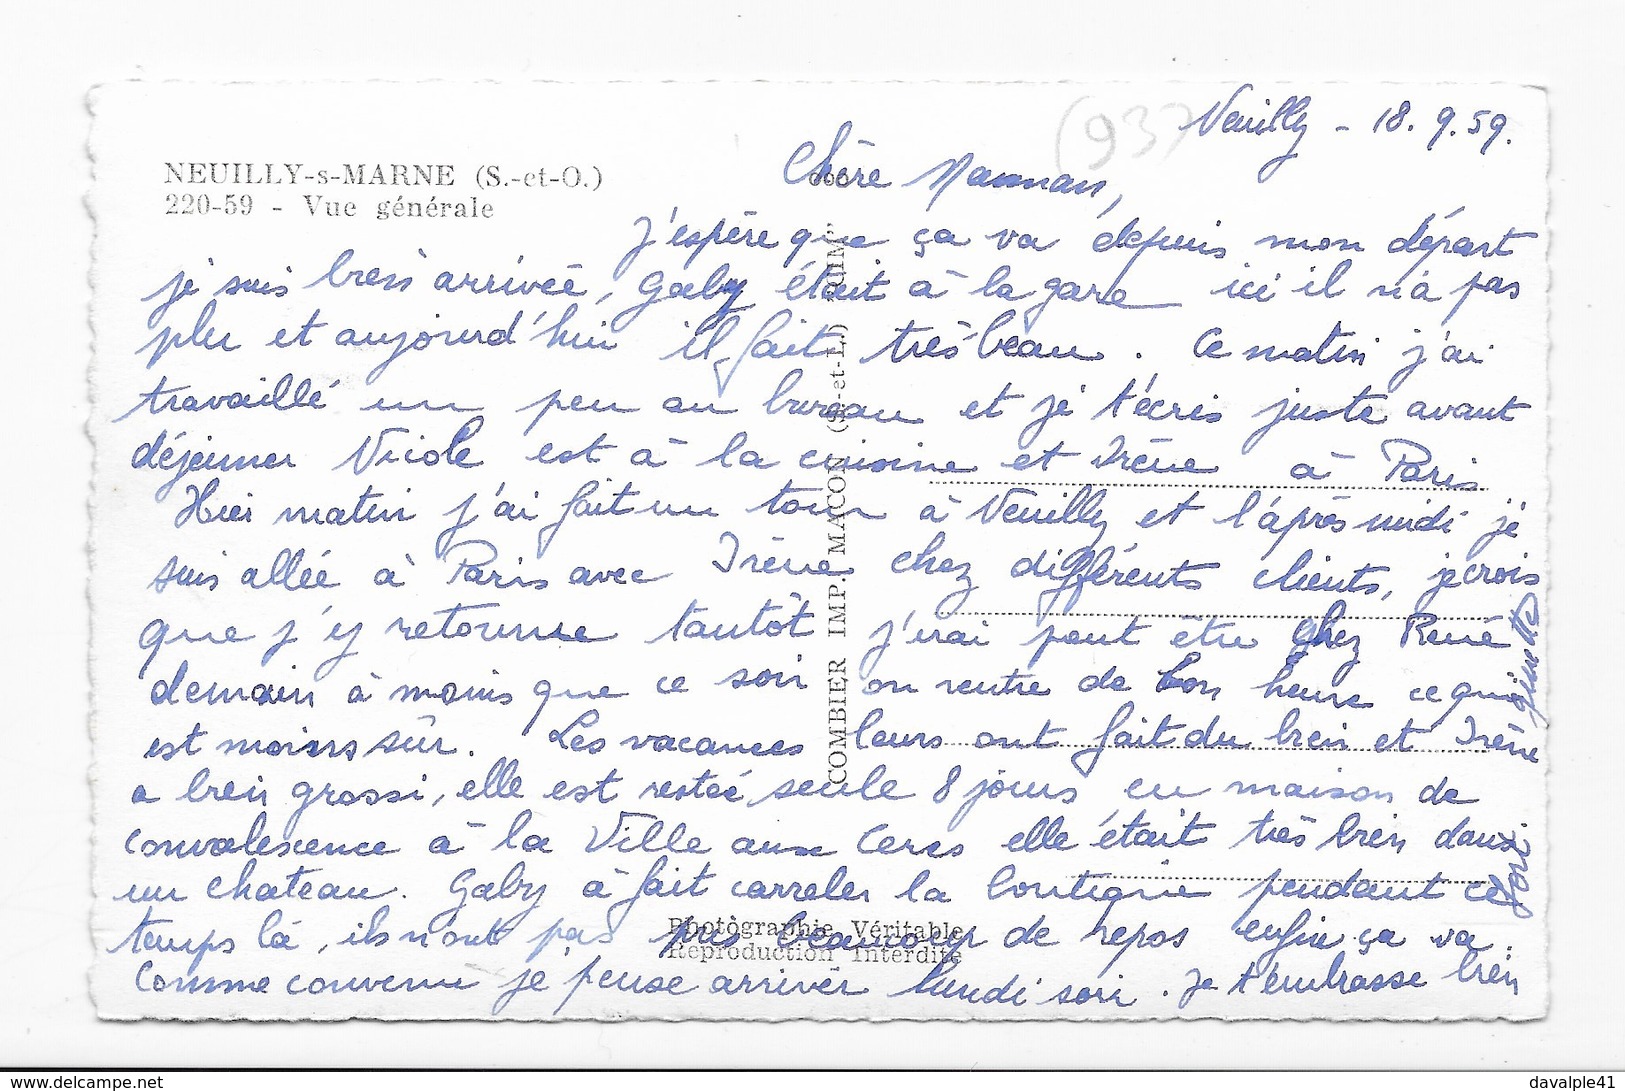 (937
Neuilly - 18.9.59.
NEUILLY-s-MARNE (S.-et-O.)
220-59 - Vue générale
Chère Maman,
J'espère que ça va depuis mon départ
je suis bien arrivée, Gaby était à la gare ici il n'a pas
plu et aujourd'hui il fait très beau. Ce matin j'ai
travaillé un peu au bureau et je t'écris juste avant
déjeuner Nicole est à la cuisine et Irène à Paris
Hier matin j'ai fait un tour à Neuilly et l'après midi je
suis allée à Paris avec Irène chez différents clients, je crois
que j'y retourne tantôt j'irai peut être chez René
demain à moins que ce soir on rentre de bon heure ce qui
est moins sûr. Les vacances leurs ont fait du bien et Irène
a bien grossi, elle est restée seule 8 jours en maison de
convalescence à la Ville aux Cercs elle était très bien dans
un chateau. Gaby à fait carreler la boutique pendant ce
temps là, ils n'ont pas pris beaucoup de repos enfin ça va.
Comme convenu je pense arriver lundi soir. Je t'embrasse bien
fort
ginette
COMBIER IMP. MACON (S.-et-L.) "CIM"
Photographie Véritable
Reproduction Interdite
davalple41